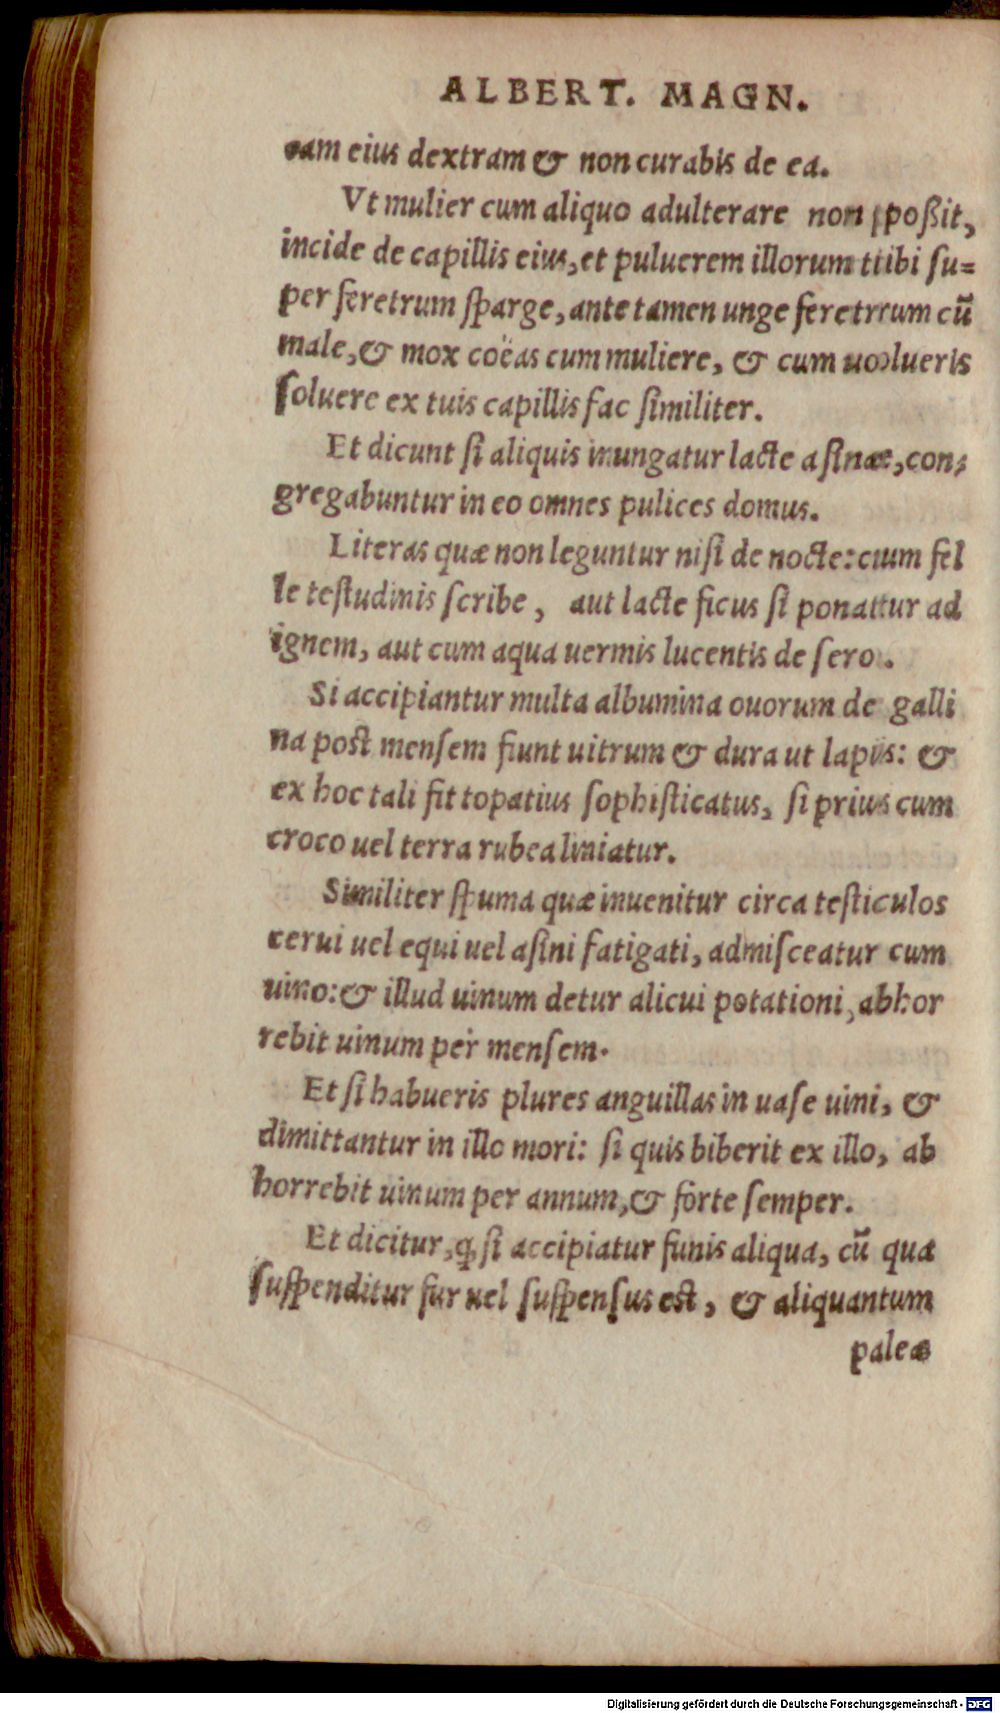 ALBERT. MAGN.
eam eius dextram & non curabis de ea.
Vt mulier cum aliquo adulterare non poßit,
incide de capillis eius, et puluerem illorum tibi su=
per feretrum sparge, ante tamen unge feretrum cū
male, & mox coëas cum muliere, & cum uolueris
soluere ex tuis capillis fac similiter.
Et dicunt si aliquis inungatur lacte asinæ, con=
gregabuntur in eo omnes pulices domus.
Literas quæ non leguntur nisi de nocte: cum fel
le testudinis scribe, aut lacte ficus si ponatur ad
ignem, aut cum aqua uermis lucentis de sero.
Si accipiantur multa albumina ouorum de galli
na post mensem fiunt uitrum & dura ut lapis: &
ex hoc tali fit topatius sophisticatus, si prius cum
croco uel terra rubea liniatur.
Similiter spuma quæ inuenitur circa testiculos
cerui uel equi uel asini fatigati, admisceatur cum
uino: & illud uinum detur alicui potationi, abhor
rebit uinum per mensem.
Et si habueris plures anguillas in uase uini, &
dimittantur in illo mori: si quis biberit ex illo, ab
horrebit uinum per annum, & forte semper.
Et dicitur, ꝙ si accipiatur funis aliqua, cū qua
suspenditur fur uel suspensus est, & aliquantum
paleæ
Digitalisierung gefördert durch die Deutsche Forschungsgemeinschaft - DFG